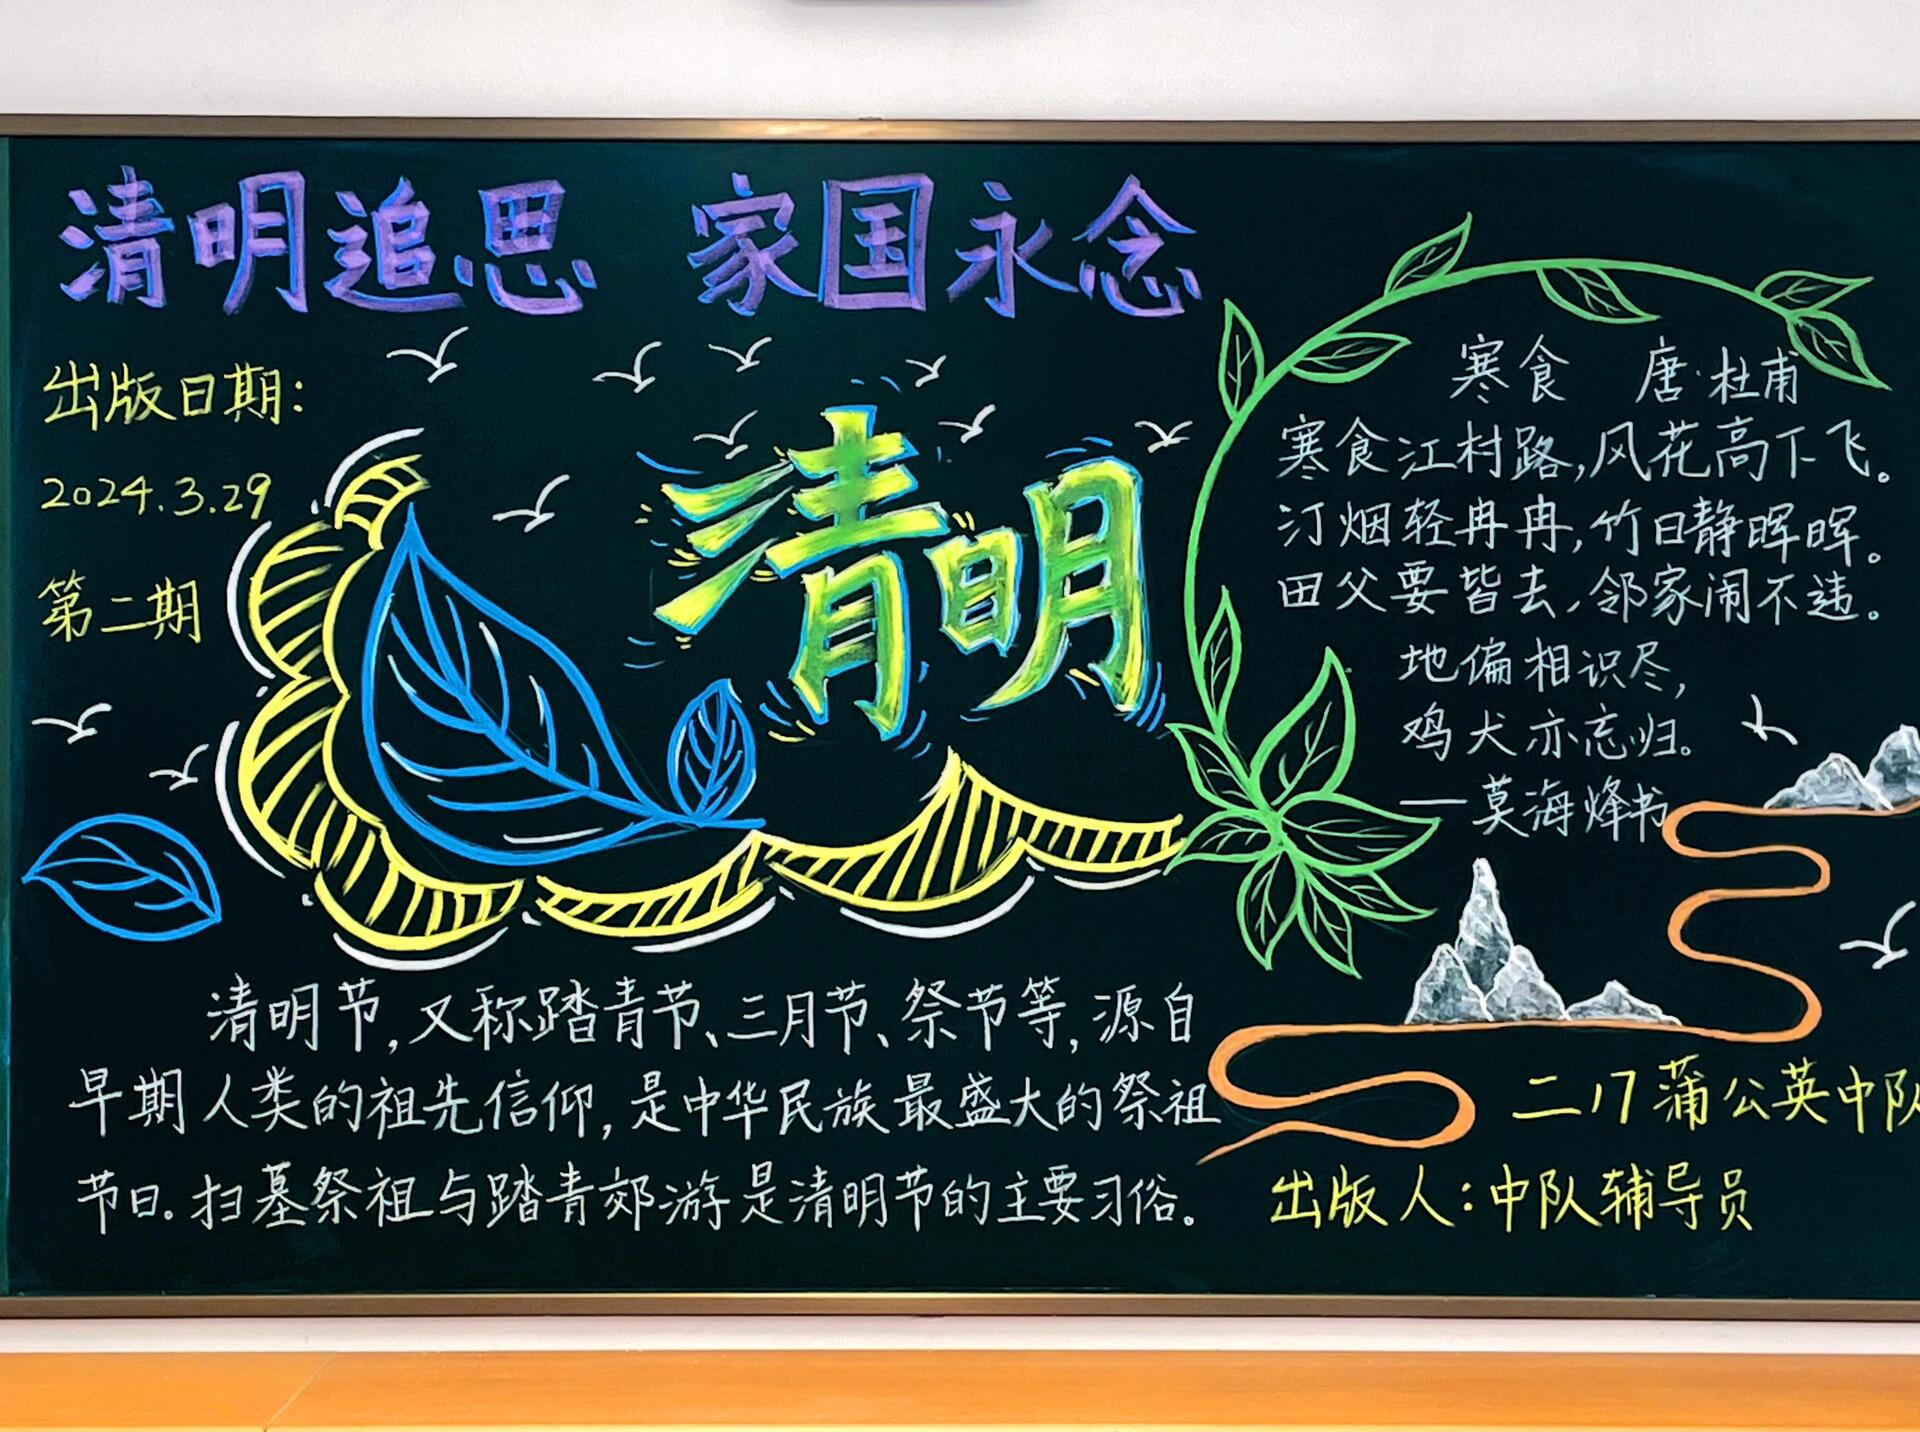 清明追思 家国永念
出版日期:
2024.3.29
第二期
清明
寒食 唐·杜甫
寒食江村路,风花高下飞。
汀烟轻冉冉,竹日静晖晖。
田父要皆去,邻家闹不违。
地偏相识尽,
鸡犬亦忘归。
—莫海烽书
清明节,又称踏青节、三月节、祭节等,源自
早期人类的祖先信仰,是中华民族最盛大的祭祖
节日。扫墓祭祖与踏青郊游是清明节的主要习俗。
二17蒲公英中队
出版人:中队辅导员